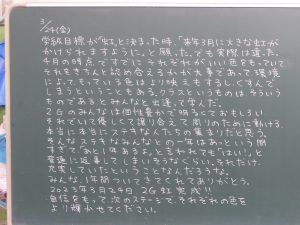 3/24(金)
学級目標が「虹」と決まった時、「来年3月に大きな虹が
かけられますように」と願った。でも実際は違った。
4月の時点ですでにそれぞれがいい色をもっていて
それをきちんと認め合えるかが大事であって環境
によってもっている色はより映えもするし、くすんで
しまうということもある。クラスというものは、そういう
ものであるとみんなと出逢って学んだ。
2Gのみんなは個性豊かで明るくておもしろい
それでいて優しくて譲り合えて周りのために動ける、
本当に本当にステキな人たちの集まりだと思う。
そんなステキなみんなとの一年はあっという間
すぎて「あと1年あるよ」と言われても「はい!」と
普通に返事してしまいそうなくらい。それだけ
充実していたということなんだろうな。
みんな、1年間ついてきてくれてありがとう。
2023年3月24日 2G 虹 完成!!
自信をもって、次のステージで、それぞれの色を
より輝かせてください。